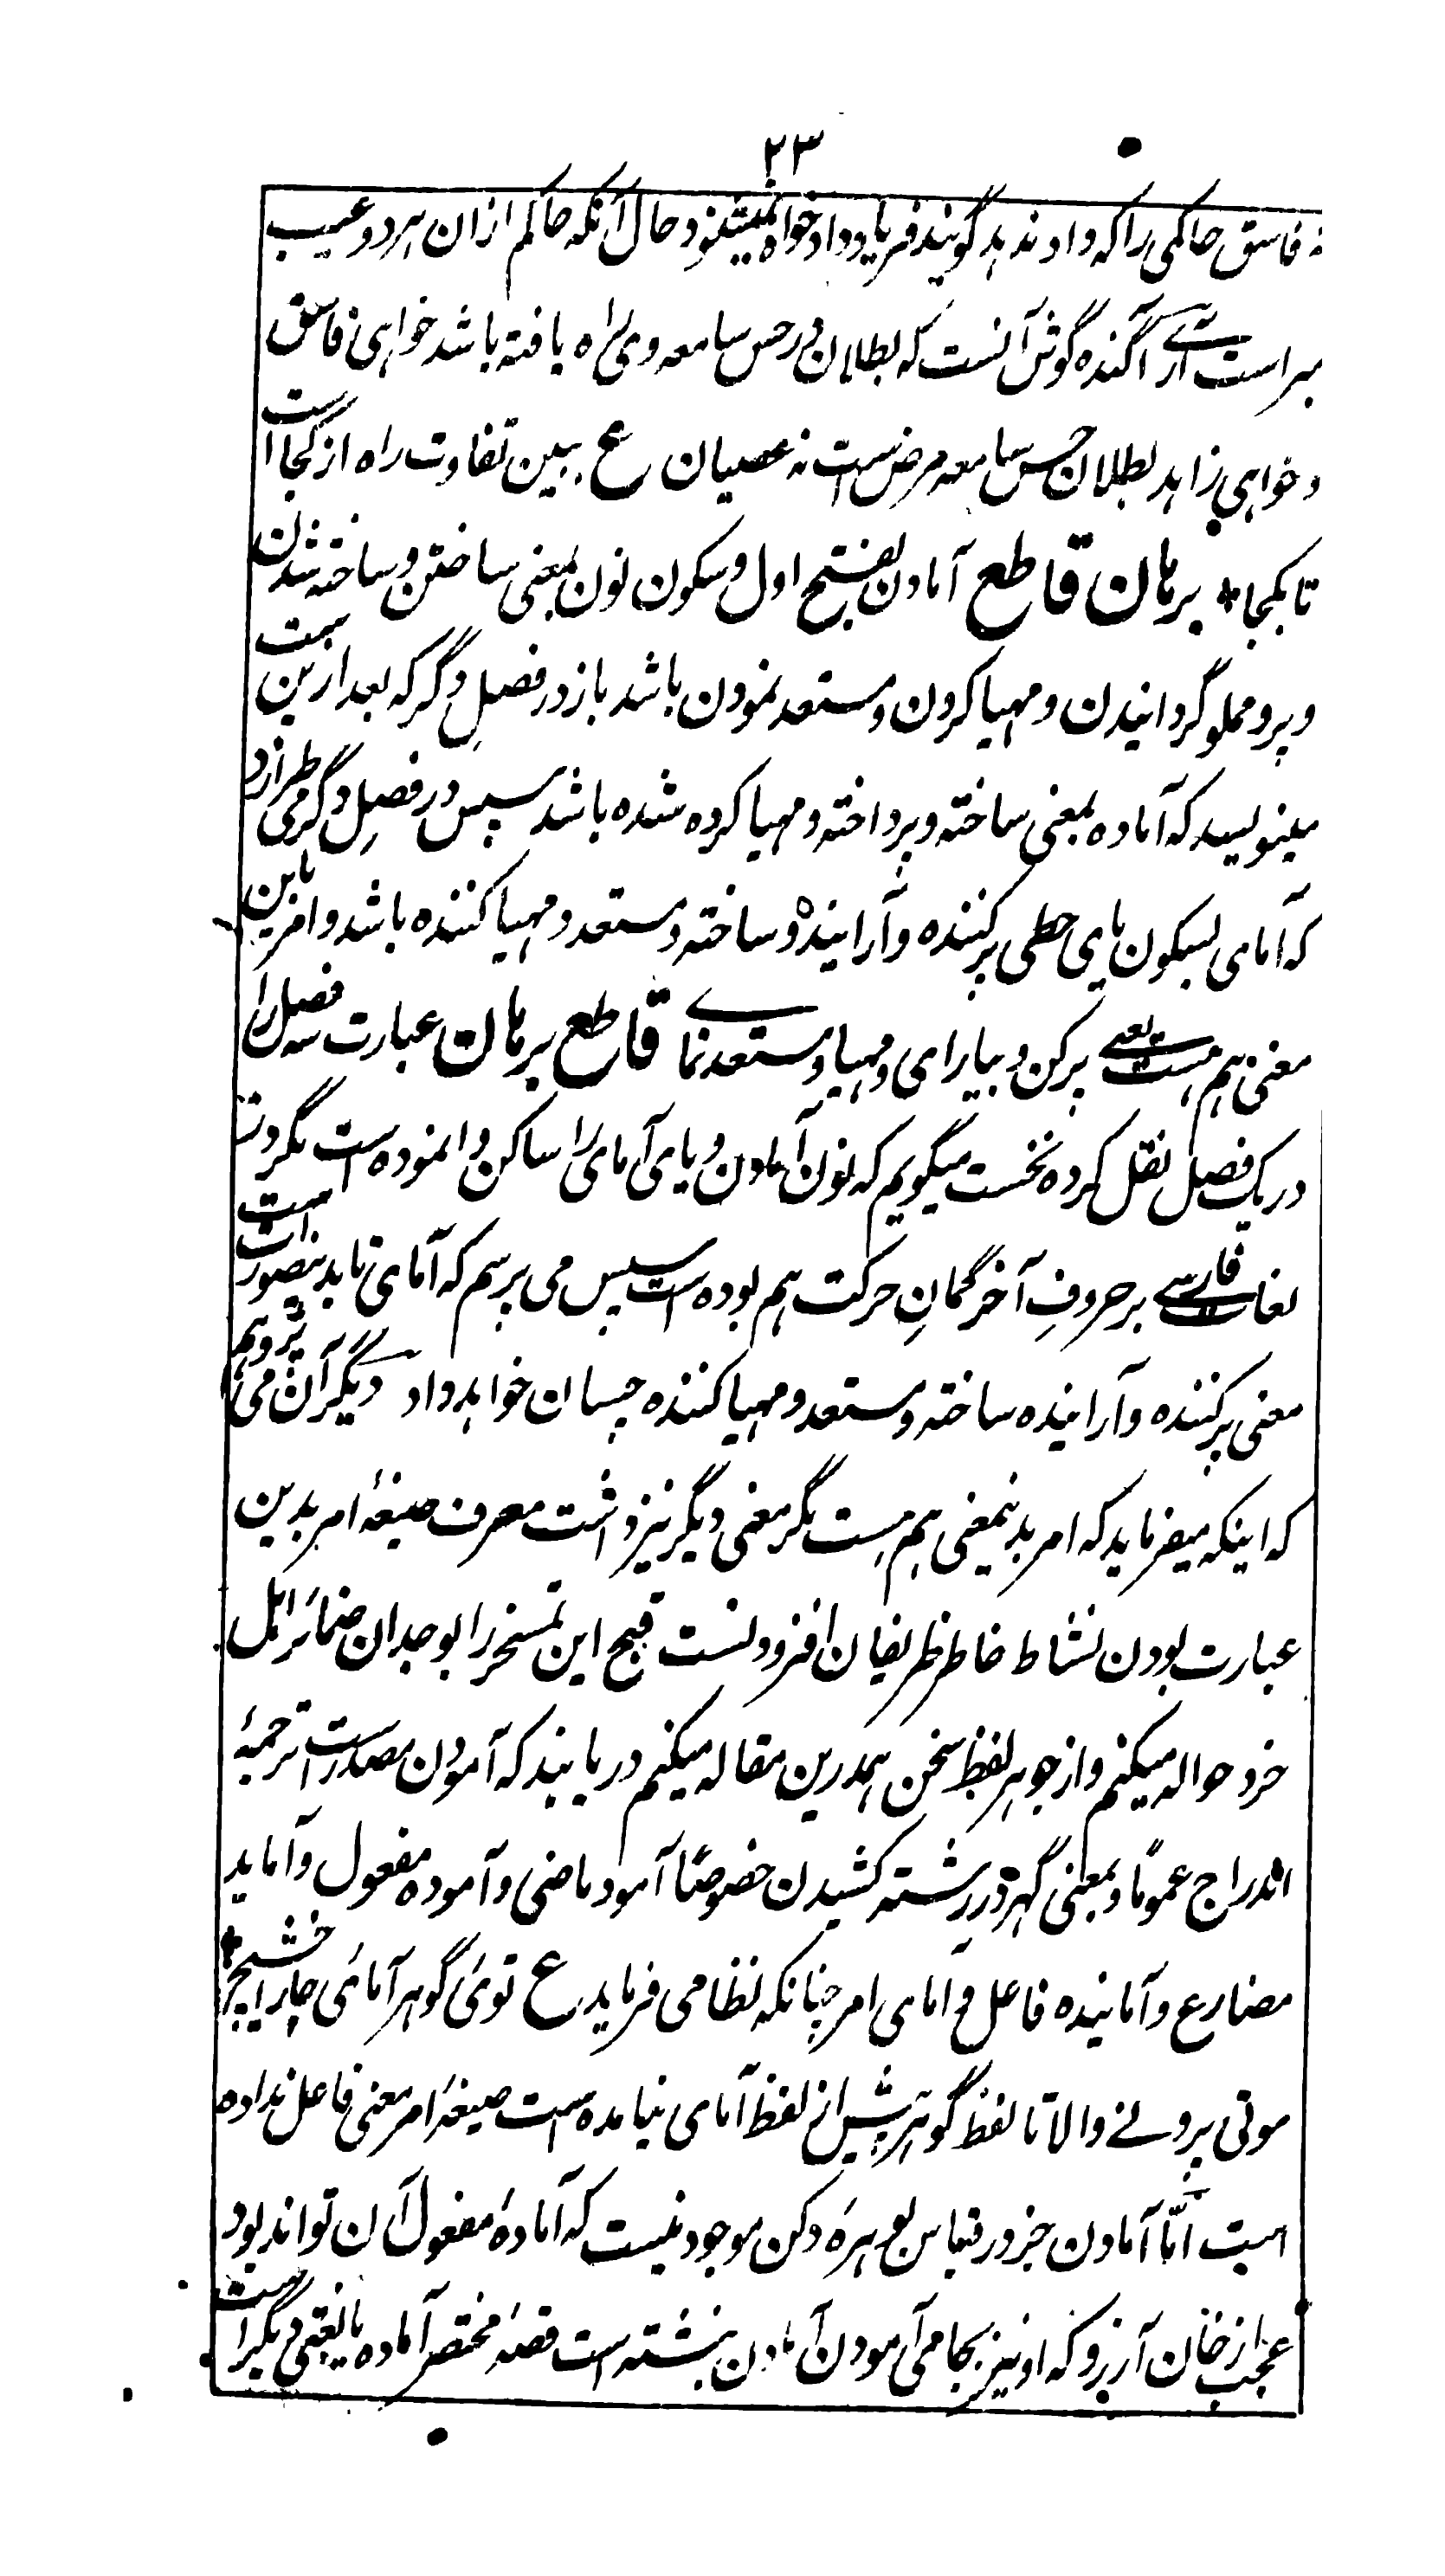 ۲۳
نه فاسق حاکمی را که داد ندهد گویند فریاد دادخواه نمیشنود حال آنکه حاکم ازان هر دو عیب
مبراست آرے آگنده گوش آنست که بطلان در حس سامعه وی راه یافته باشد خواهی فاسق
و خواهی زاهد بطلان حس سامعه مرض ست نه عصیان ع ببین تفاوت راه از کجا است
تا بکجا * برهان قاطع آمادن بفتح اول و سکون نون بمعنی ساختن و ساخته شدن
و پر و مملو گردانیدن و مهیا کردن و مستعد نمودن باشد باز در فصلِ دگر که بعد ازین ست
مینویسد که آماده بمعنی ساخته و پرداخته و مهیا کرده شده باشد سپس در فصلِ دگر می طرازد
که آمای بسکون یای حطی پر کننده و آراینده و ساخته و مستعد و مهیا کننده باشد و امر باین
معنی هم هست یعنے پر کن و بیارای و مهیا و مستعد نماے قاطع برهان عبارت سه فصل را
در یک فصل نقل کرده نخست میگویم که نون آمادن و یای آمای را ساکن وانموده است مگر در
لغات فارسے بر حروفِ آخر گمانِ حرکت هم بوده است سپس می پرسم که آمای تا بدینصورت است
معنی پر کننده و آراینده ساخته و مستعد و مهیا کننده چسان خواهد داد دیگر آن می پژوهم
که اینکه میفرماید که امر بدینمعنی هم هست مگر معنی دیگر نیز داشت معرف صیغهٔ امر بدین
عبارت بودن نشاط خاطر ظریفان افزودنست قبح این تمسخر را بوجدان ضمائر اهل
خرد حواله میکنم و از جوهر لفظ سخن همدرین مقاله میکنم دریابند که آمودن مصدرست ترجمهٔ
اندراج عموماً و بمعنی گهر در رشته کشیدن خصوصاً آمود ماضی و آموده مفعول و آماید
مضارع و آماینده فاعل و آمای امر چنانکه نظامی فرماید ع توئی گوهر آمائی چار اخشیج *
موتی پرونے والا تا لفظ گوهر پیش از لفظ آمای نیامده است صیغهٔ امر معنی فاعل نداده
است امّا آمادن جز در قیاس بو بهرهٔ دکن موجود نیست که آمادهٔ مفعول آن تواند بود
عجب از خان آرزو که او نیز بجای آمودن آمادن بنشته است قصهٔ مختصر آماده یا لغتی دیگر است